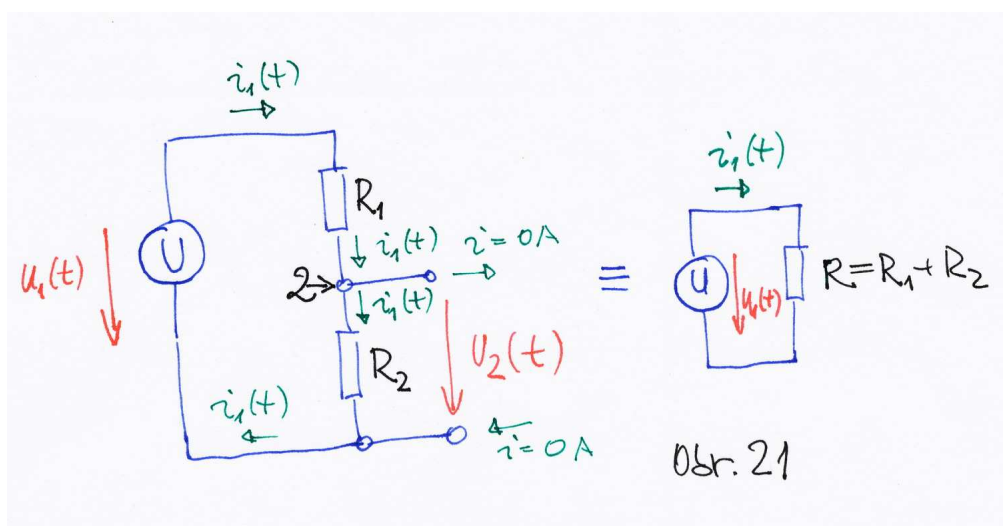 i₁(t)
R₁
U
u₁(t)
i₁(t)
i = 0A
2→
i₁(t)
R₂
U₂(t)
i₁(t)
i = 0A
i₁(t)
≡
U
u₁(t)
R = R₁ + R₂
Obr. 21